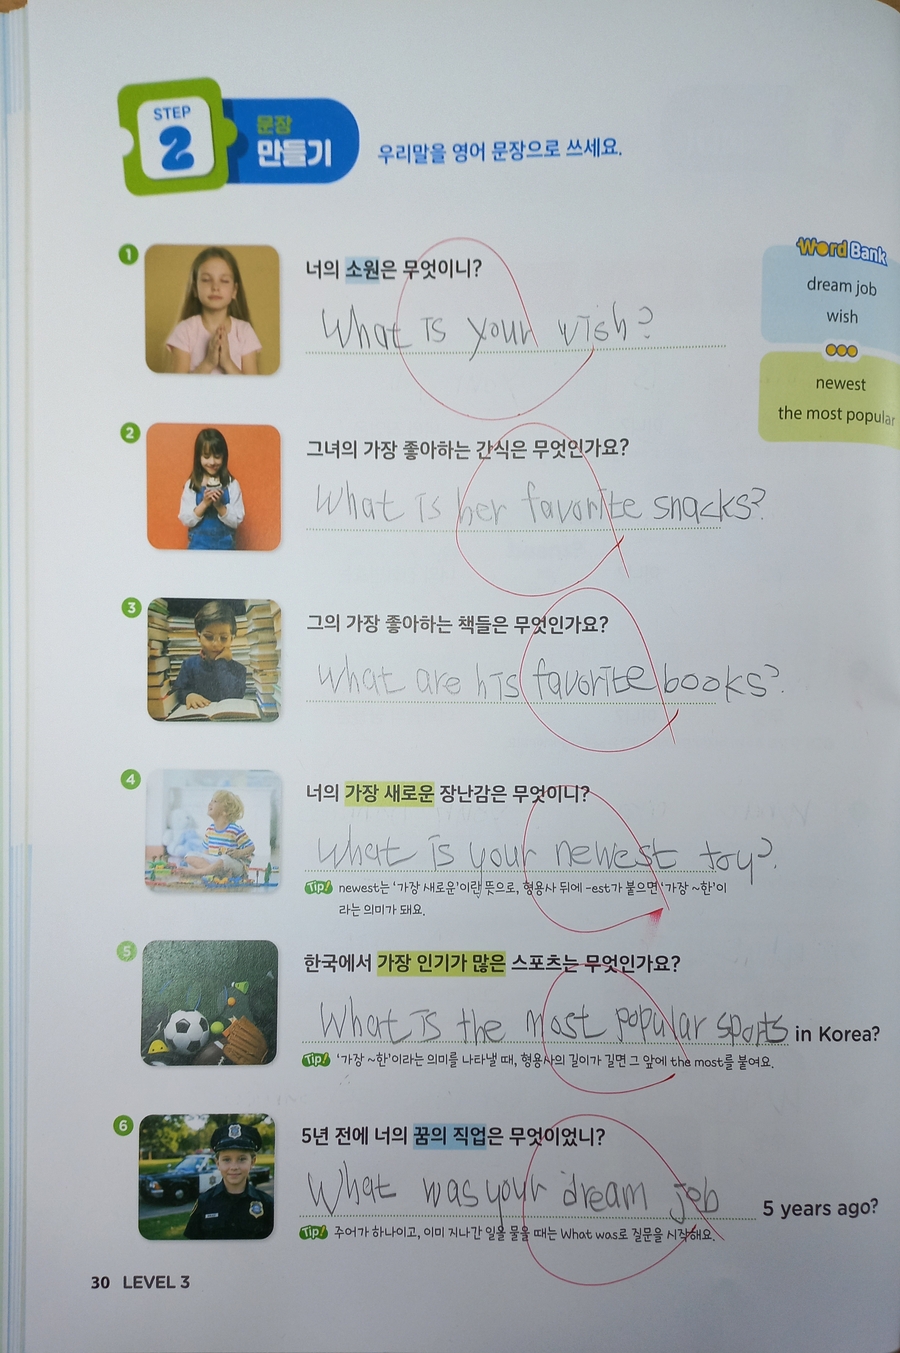 STEP
2
문장
만들기
우리말을 영어 문장으로 쓰세요.
Word Bank
dream job
wish
newest
the most popular
1
너의 소원은 무엇이니?
What is your wish?
2
그녀의 가장 좋아하는 간식은 무엇인가요?
What is her favorite snacks?
3
그의 가장 좋아하는 책들은 무엇인가요?
What are his favorite books?
4
너의 가장 새로운 장난감은 무엇이니?
What is your newest toy?
Tip! newest는 '가장 새로운'이란 뜻으로, 형용사 뒤에 -est가 붙으면 '가장 ~한'이
라는 의미가 돼요.
5
한국에서 가장 인기가 많은 스포츠는 무엇인가요?
What is the most popular sports in Korea?
Tip! '가장 ~한'이라는 의미를 나타낼 때, 형용사의 길이가 길면 그 앞에 the most를 붙여요.
6
5년 전에 너의 꿈의 직업은 무엇이었니?
What was your dream job 5 years ago?
Tip! 주어가 하나이고, 이미 지나간 일을 물을 때는 What was로 질문을 시작해요.
30 LEVEL 3